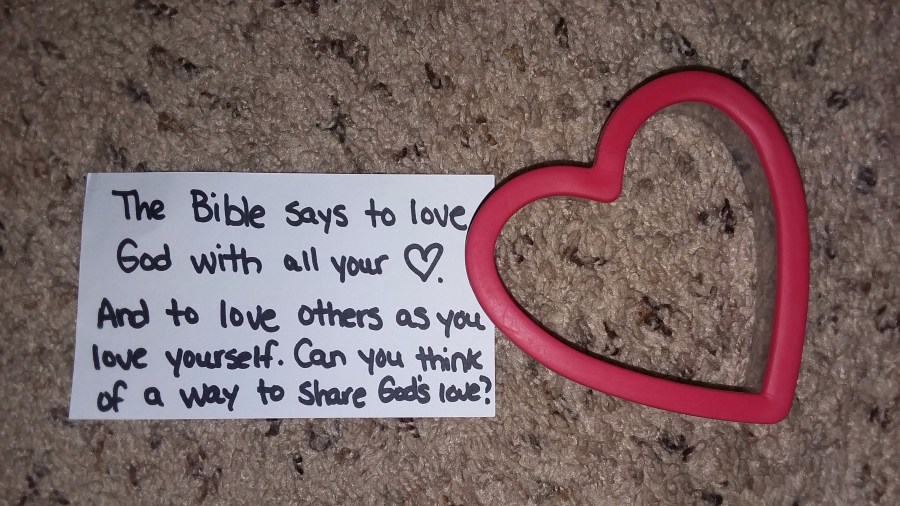 The Bible says to love
God with all your ♡.
And to love others as you
love yourself. Can you think
of a way to share God's love?